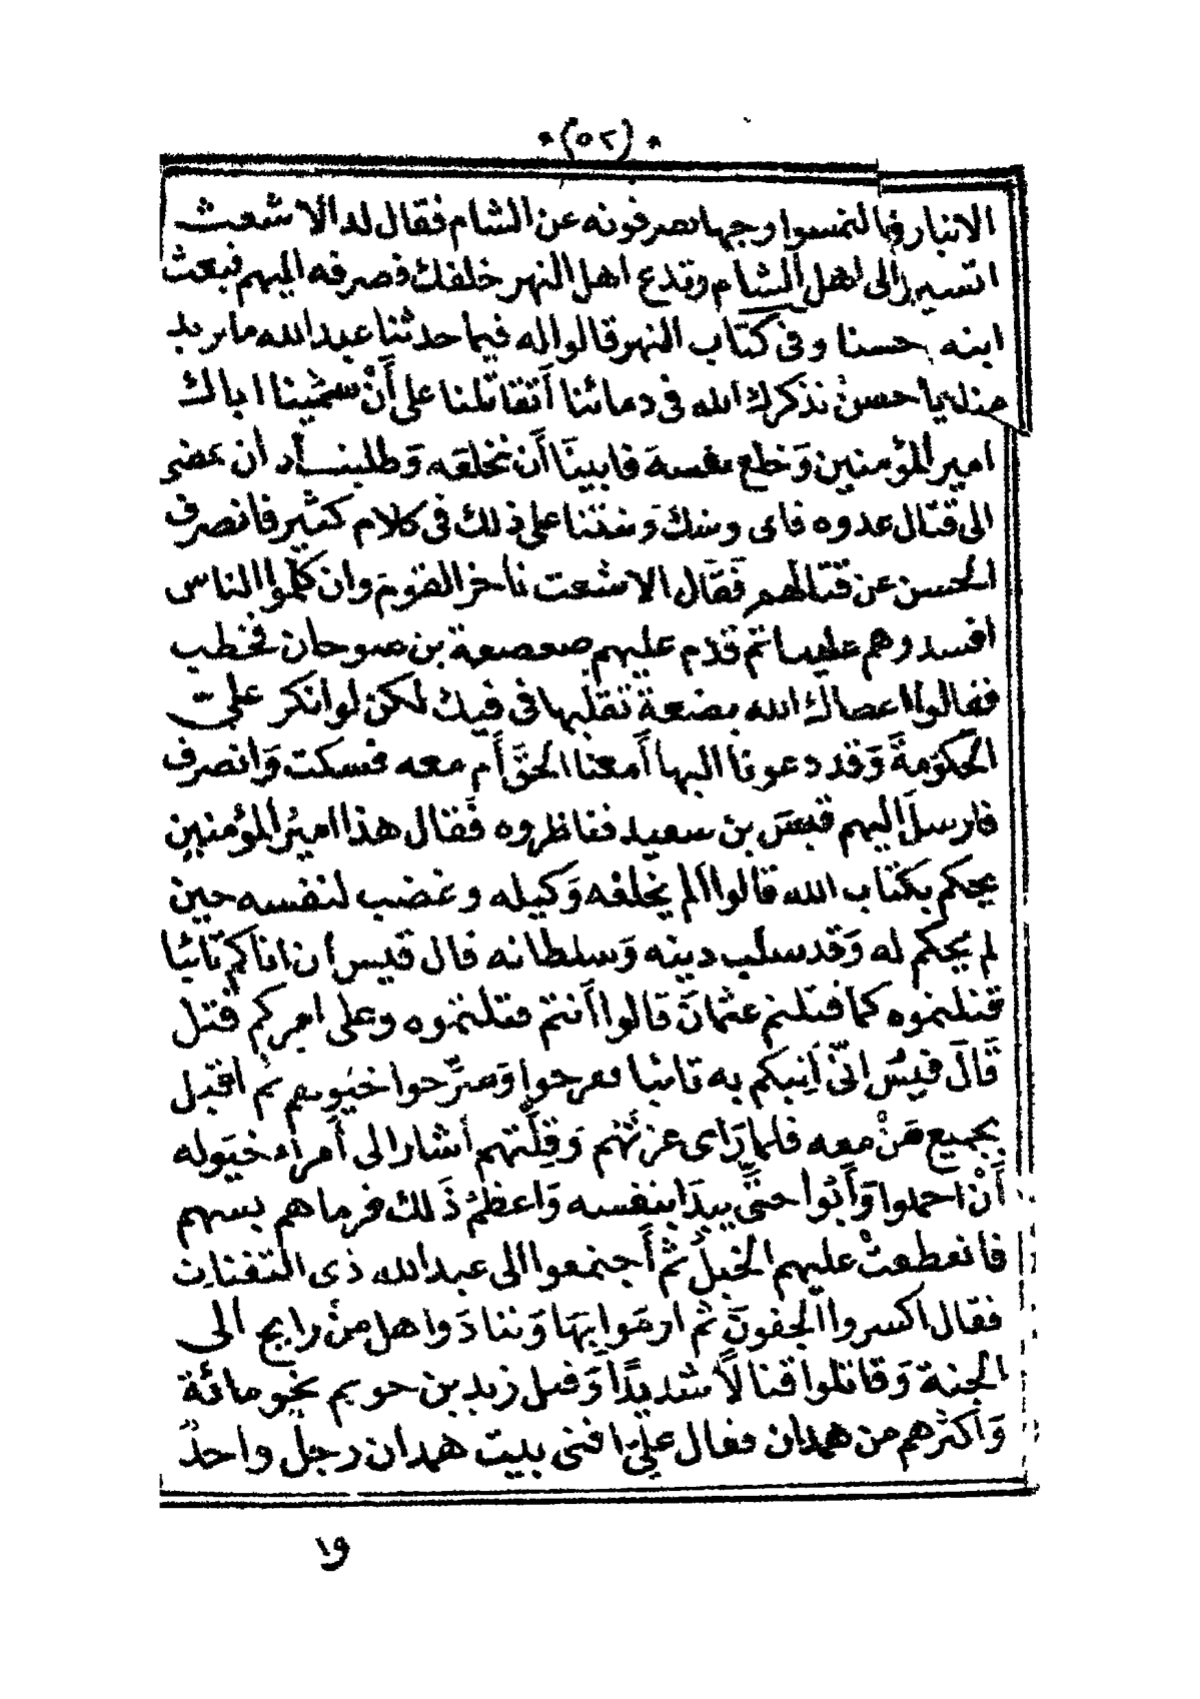 *(٥٢)*
الانبار فما لتمسوا وجها نصرفونه عن الشام فقال له الاشعث
اتسير الى اهل الشام وتدع اهل النهر خلفك فصرفه اليهم فبعث
ابنه حسنا وفى كتاب النهر قالوا له فيما حدثنا عبد الله ما تريد
منا يا حسن نذكرك الله فى دمائنا أتقاتلنا على أن سمينا اباك
امير المؤمنين وَخلع نفسه فابينا أن نخلعه وَطلبنا أن نمضى
الى قتال عدوه فابى وشك وَشتنا على ذلك فى كلام كثير فانصرف
الحسن عن قتالهم فَقال الاشعت ناخز القوم وان كلموا الناس
افسدوهم علينا ثم قدم عليهم صعصعة بن صوحان فخطب
فقالوا اعصاك الله بضعة تقلبها فى فيك لكن لو انكر علىّ
الحكومةَ وَقد دعوتا اليها أمعنا الحقَ أم معه فسكت وَانصرف
فارسلَ اليهم قيسَ بن سعيد فناظروه فَقال هذا اميرُ المؤمنين
يحكم بكتاب الله قالوا ألم يخلفه وَكيله وغضب لنفسه حين
لم يحكم له وَقد سلب دينه وَسلطانه قال قيس أن اناكم تائبا
قتلتموه كما قتلتم عثمانَ قالوا أنتم قتلتموه وعلى امركم قتل
قَالَ قيسُ انّى اتيكم به تائبا فعرجوا وَسرّحوا خيوبهم ثم اقبل
بجميع مَنْ معه فلما رَاى عزتهم وَقِلّتهم أشار الى أمراء خيَوله
أنْ احملوا وَأبوا حتَّى يبدَا بنفسه وَاعظمُ ذَلك فرماهم بسهم
فانعطعتْ عليهم الخيلُ ثم أجتمعوا الى عبد الله ذى التفنات
فقال اكسروا الجفونَ ثم ارمَوا بهَا وَتنادَوا هل منْ رايح الى
الجنة وَقاتلوا قتالًا شديدًا وَقتل زيد بن حويم بخو مائة
وَأكثرهم من همدان فقال علىّ افنى بييت همدان رجل واحدُ
وا